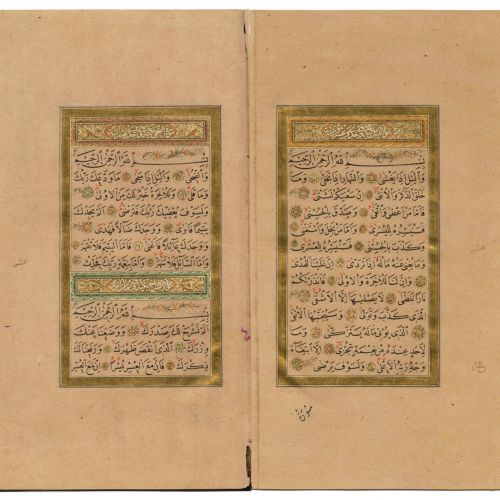 بِسْمِ اللهِ الرَّحْمٰنِ الرَّحِيمِ
وَالَّيْلِ اِذَا يَغْشٰى وَالنَّهَارِ اِذَا تَجَلّٰى وَمَا
خَلَقَ الذَّكَرَ وَالْاُنْثٰى اِنَّ سَعْيَكُمْ لَشَتّٰى
فَاَمَّا مَنْ اَعْطٰى وَاتَّقٰى وَصَدَّقَ بِالْحُسْنٰى
فَسَنُيَسِّرُهُ لِلْيُسْرٰى وَاَمَّا مَنْ بَخِلَ وَاسْتَغْنٰى
وَكَذَّبَ بِالْحُسْنٰى فَسَنُيَسِّرُهُ لِلْعُسْرٰى
وَمَا يُغْنِي عَنْهُ مَالُهُ اِذَا تَرَدّٰى اِنَّ عَلَيْنَا لَلْهُدٰى
وَاِنَّ لَنَا لَلْاٰخِرَةَ وَالْاُولٰى فَاَنْذَرْتُكُمْ
نَارًا تَلَظّٰى لَا يَصْلٰيهَا اِلَّا الْاَشْقٰى
الَّذِي كَذَّبَ وَتَوَلّٰى وَسَيُجَنَّبُهَا الْاَتْقٰى
الَّذِي يُؤْتِي مَالَهُ يَتَزَكّٰى وَمَا
لِاَحَدٍ عِنْدَهُ مِنْ نِعْمَةٍ تُجْزٰى اِلَّا ابْتِغَاءَ
وَجْهِ رَبِّهِ الْاَعْلٰى وَلَسَوْفَ يَرْضٰى
بِسْمِ اللهِ الرَّحْمٰنِ الرَّحِيمِ
وَالضُّحٰى وَالَّيْلِ اِذَا سَجٰى مَا وَدَّعَكَ رَبُّكَ
وَمَا قَلٰى وَلَلْاٰخِرَةُ خَيْرٌ لَكَ مِنَ الْاُولٰى
وَلَسَوْفَ يُعْطِيكَ رَبُّكَ فَتَرْضٰى اَلَمْ يَجِدْكَ
يَتِيمًا فَاٰوٰى وَوَجَدَكَ ضَالًّا فَهَدٰى
وَوَجَدَكَ عَائِلًا فَاَغْنٰى فَاَمَّا الْيَتِيمَ فَلَا تَقْهَرْ
وَاَمَّا السَّائِلَ فَلَا تَنْهَرْ وَاَمَّا بِنِعْمَةِ رَبِّكَ فَحَدِّثْ
بِسْمِ اللهِ الرَّحْمٰنِ الرَّحِيمِ
اَلَمْ نَشْرَحْ لَكَ صَدْرَكَ وَوَضَعْنَا عَنْكَ
وِزْرَكَ الَّذِي اَنْقَضَ ظَهْرَكَ وَرَفَعْنَا لَكَ
ذِكْرَكَ فَاِنَّ مَعَ الْعُسْرِ يُسْرًا اِنَّ مَعَ الْعُسْرِ